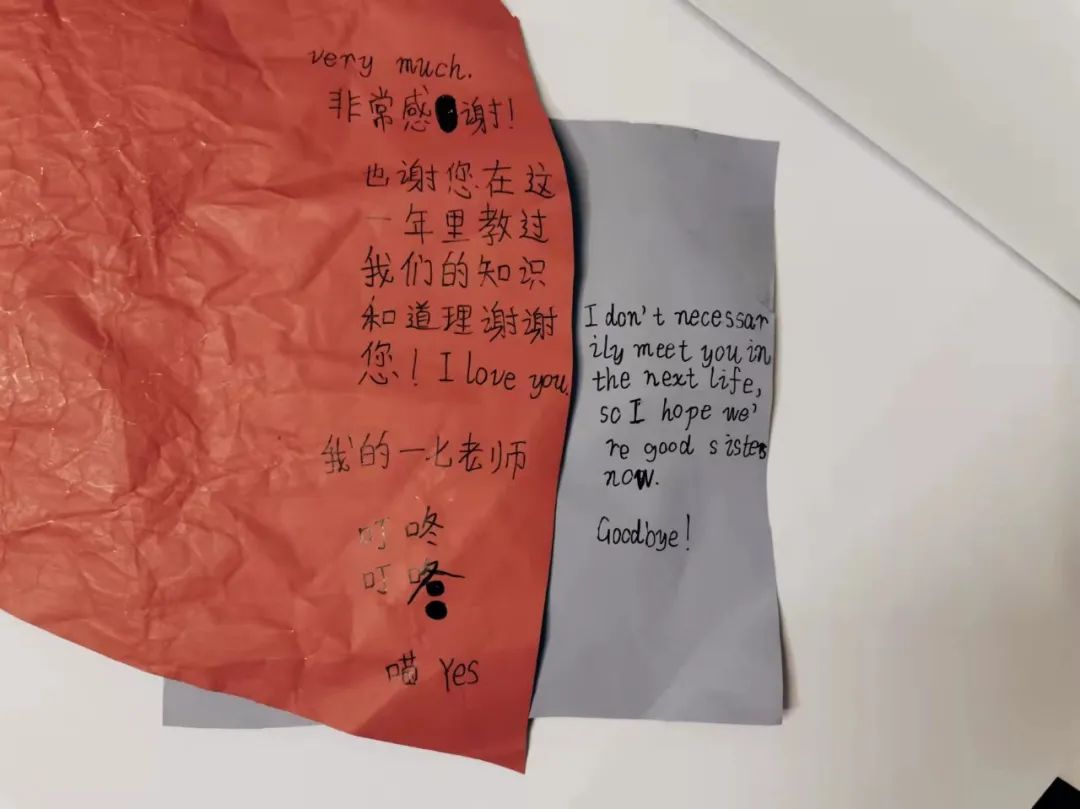 very much.
非常感谢!
也谢您在这
一年里教过
我们的知识
和道理谢谢
您！I love you.
我的一七老师
叮咚
叮咚
喵 Yes
I don't necessar
ily meet you in
the next life,
so I hope we'
re good sisters
now.
Goodbye!